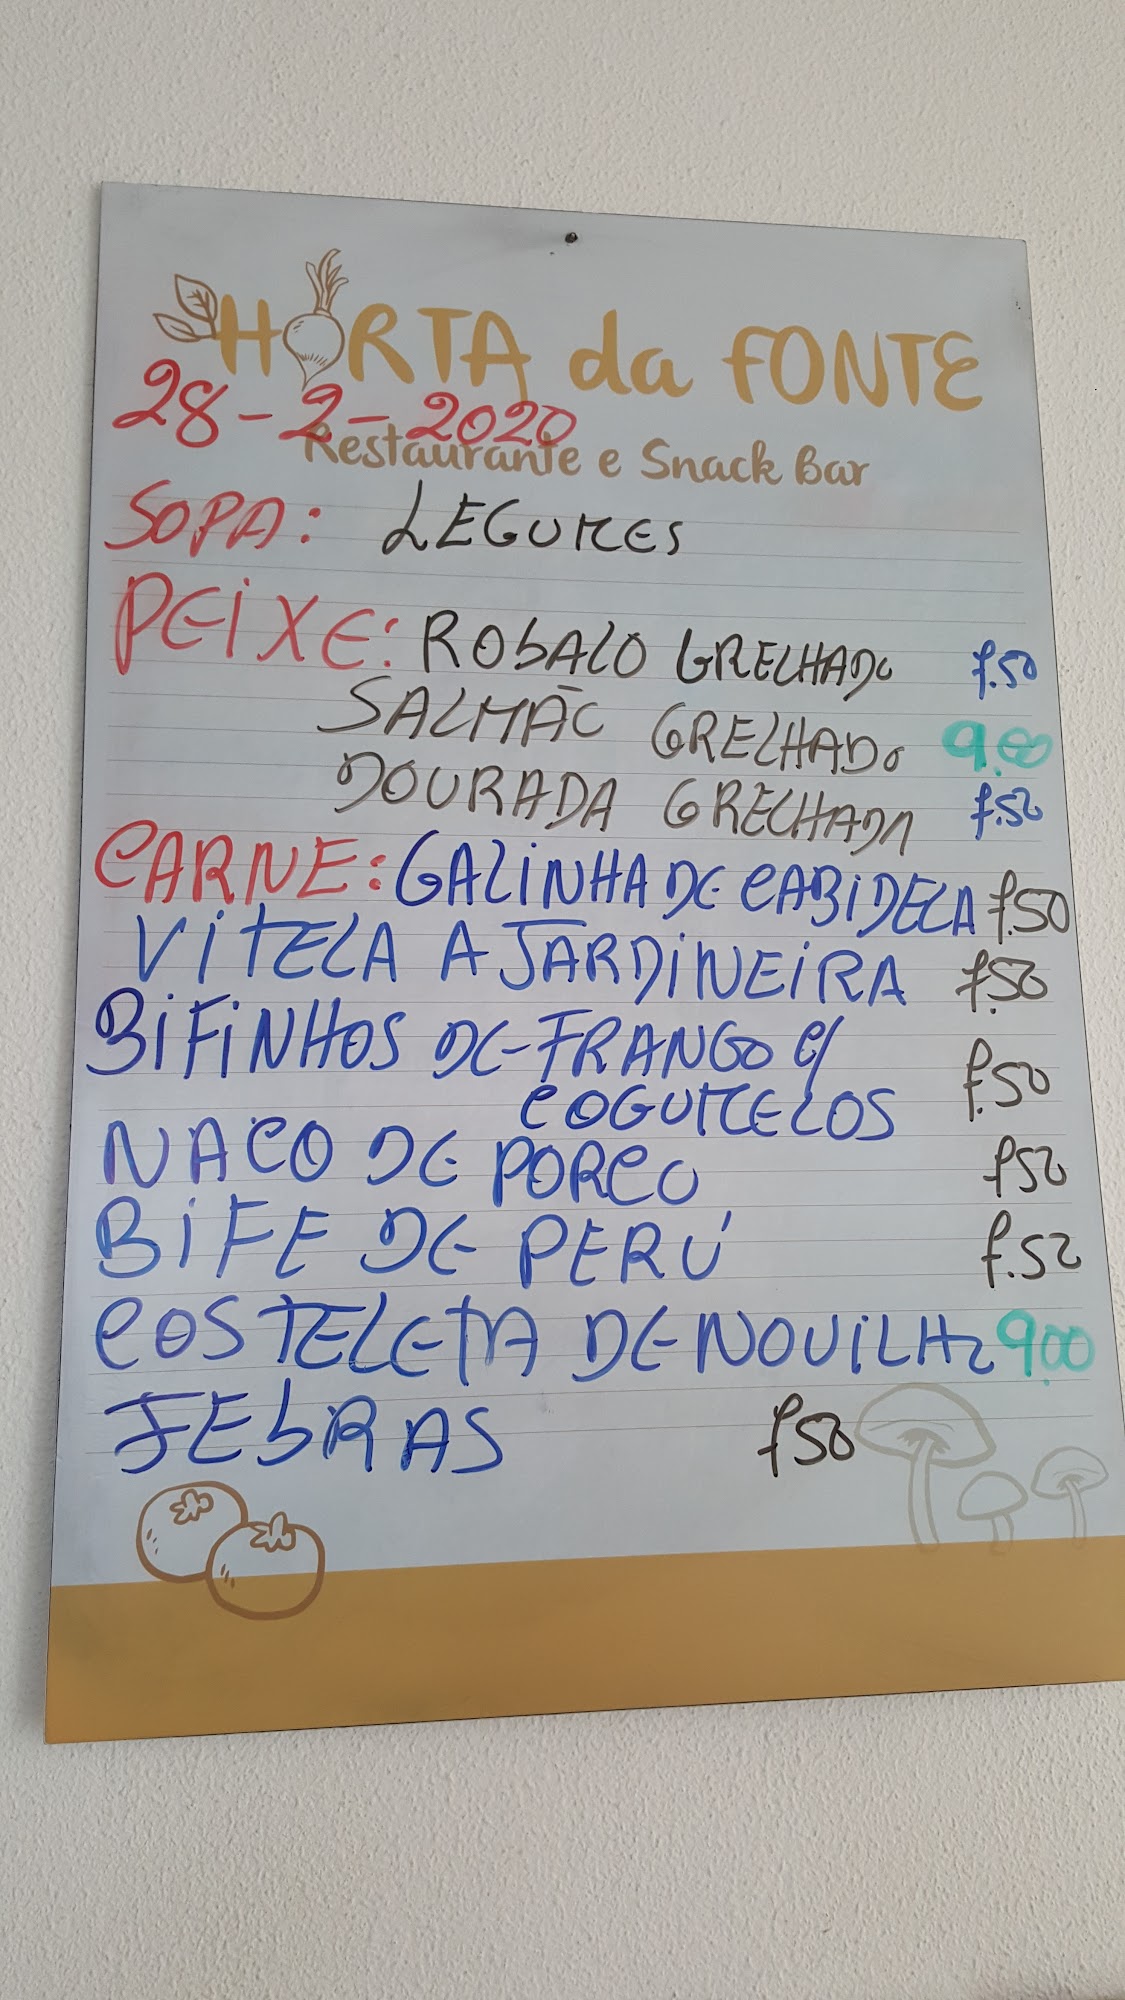 HORTA da FONTE
28-2-2020
Restaurante e Snack Bar
SOPA: LEGUMES
PEIXE: ROBALO GRELHADO 7.50
SALMÃO GRELHADO 9.00
DOURADA GRELHADA 7.50
CARNE: GALINHA DE CABIDELA 7.50
VITELA A JARDINEIRA 7.50
BIFINHOS DE FRANGO C/ 7.50
COGUMELOS
NACO DE PORCO 7.50
BIFE DE PERÚ 7.50
COSTELETA DE NOVILHO 9.00
FEBRAS 7.50